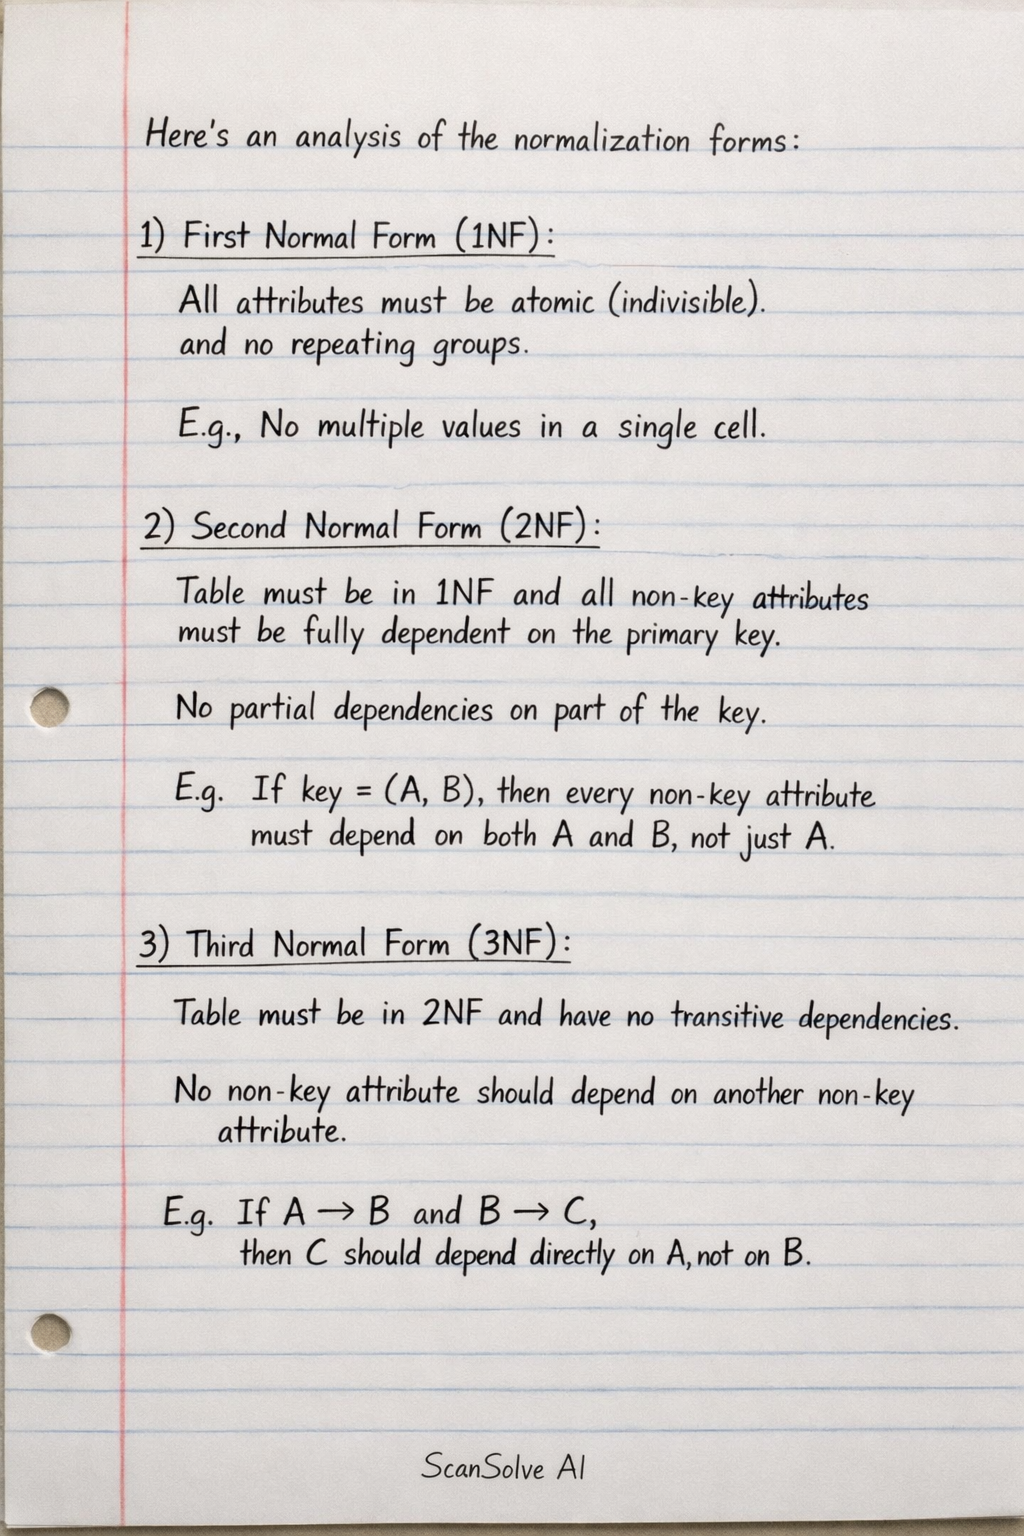 Here's an analysis of the normalization forms:
1) First Normal Form (1NF):
All attributes must be atomic (indivisible).
and no repeating groups.
E.g., No multiple values in a single cell.
2) Second Normal Form (2NF):
Table must be in 1NF and all non-key attributes
must be fully dependent on the primary key.
No partial dependencies on part of the key.
E.g. If key = (A, B), then every non-key attribute
must depend on both A and B, not just A.
3) Third Normal Form (3NF):
Table must be in 2NF and have no transitive dependencies.
No non-key attribute should depend on another non-key
attribute.
E.g. If A → B and B → C,
then C should depend directly on A, not on B.
ScanSolve AI